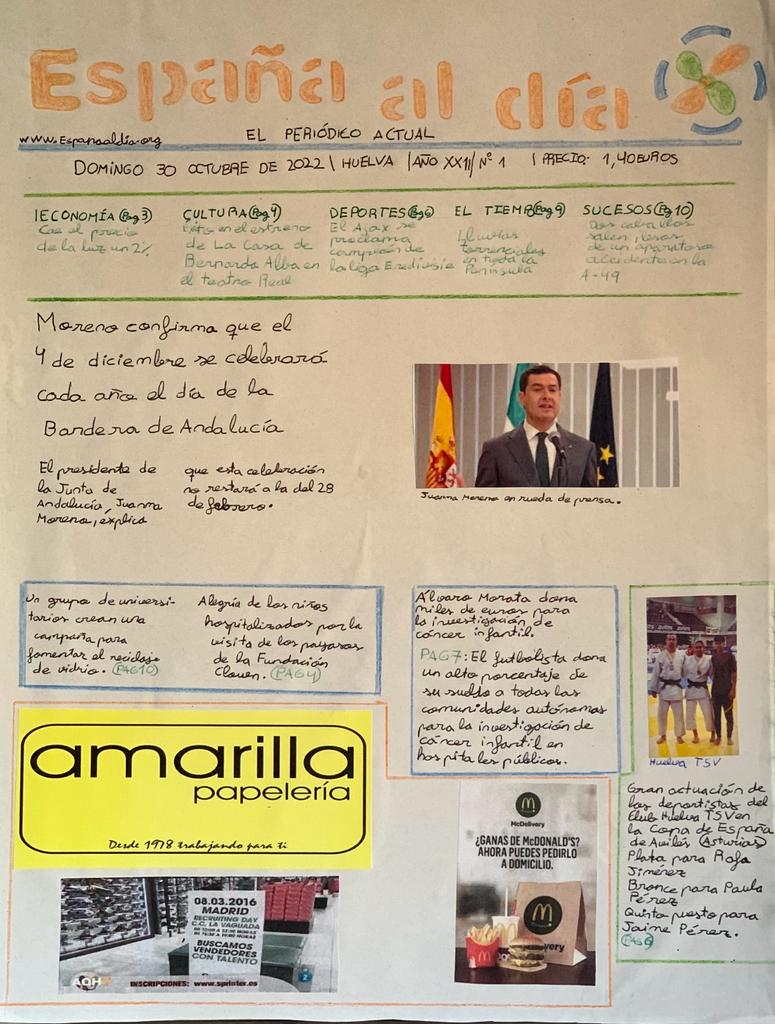 España al día
www.Espanaaldia.org
EL PERIÓDICO ACTUAL
DOMINGO 30 OCTUBRE DE 2022 \ HUELVA |AÑO XXII/ Nº 1 | PRECIO: 1,40EUROS
ECONOMÍA (Pag 3)
Cae el precio
de la luz un 2%
CULTURA (Pag 4)
Éxito en el estreno
de La Casa de
Bernarda Alba en
el teatro Real
DEPORTES (Pag 6)
El Ajax se
proclama
campeón de
la liga Eredivisie
EL TIEMPO (Pag 9)
Lluvias
torrenciales
en toda la
Península
SUCESOS (Pag 10)
Dos caballos
salen ilesos
de un aparatoso
accidente en la
A-49
Moreno confirma que el
4 de diciembre se celebrará
cada año el día de la
Bandera de Andalucía
El presidente de
la Junta de
Andalucía, Juanma
Moreno, explica
que esta celebración
no restará a la del 28
de febrero.
Juanma Moreno en rueda de prensa.
Un grupo de universi-
tarios crean una
campaña para
fomentar el reciclaje
de vidrio. (PAG10)
Alegría de los niños
hospitalizados por la
visita de los payasos
de la Fundación
Clowen. (PAG4)
Álvaro Morata dona
miles de euros para
la investigación de
cáncer infantil.
PAG7: El futbolista dona
un alto porcentaje de
su sueldo a todas las
comunidades autónomas
para la investigación de
cáncer infantil en
hospitales públicos.
Huelva TSV
Gran actuación de
los deportistas del
Club Huelva TSV en
la Copa de España
de Avilés (Asturias)
Plata para Rafa
Jiménez
Bronce para Paula
Pérez
Quinto puesto para
Jaime Pérez.
(PAG 6)
amarilla
papelería
Desde 1978 trabajando para ti
08.03.2016
MADRID
RECRUITING DAY
C.C. LA VAGUADA
BUSCAMOS
VENDEDORES
CON TALENTO
INSCRIPCIONES: www.sprinter.es
McDelivery
¿GANAS DE McDONALD'S?
AHORA PUEDES PEDIRLO
A DOMICILIO.